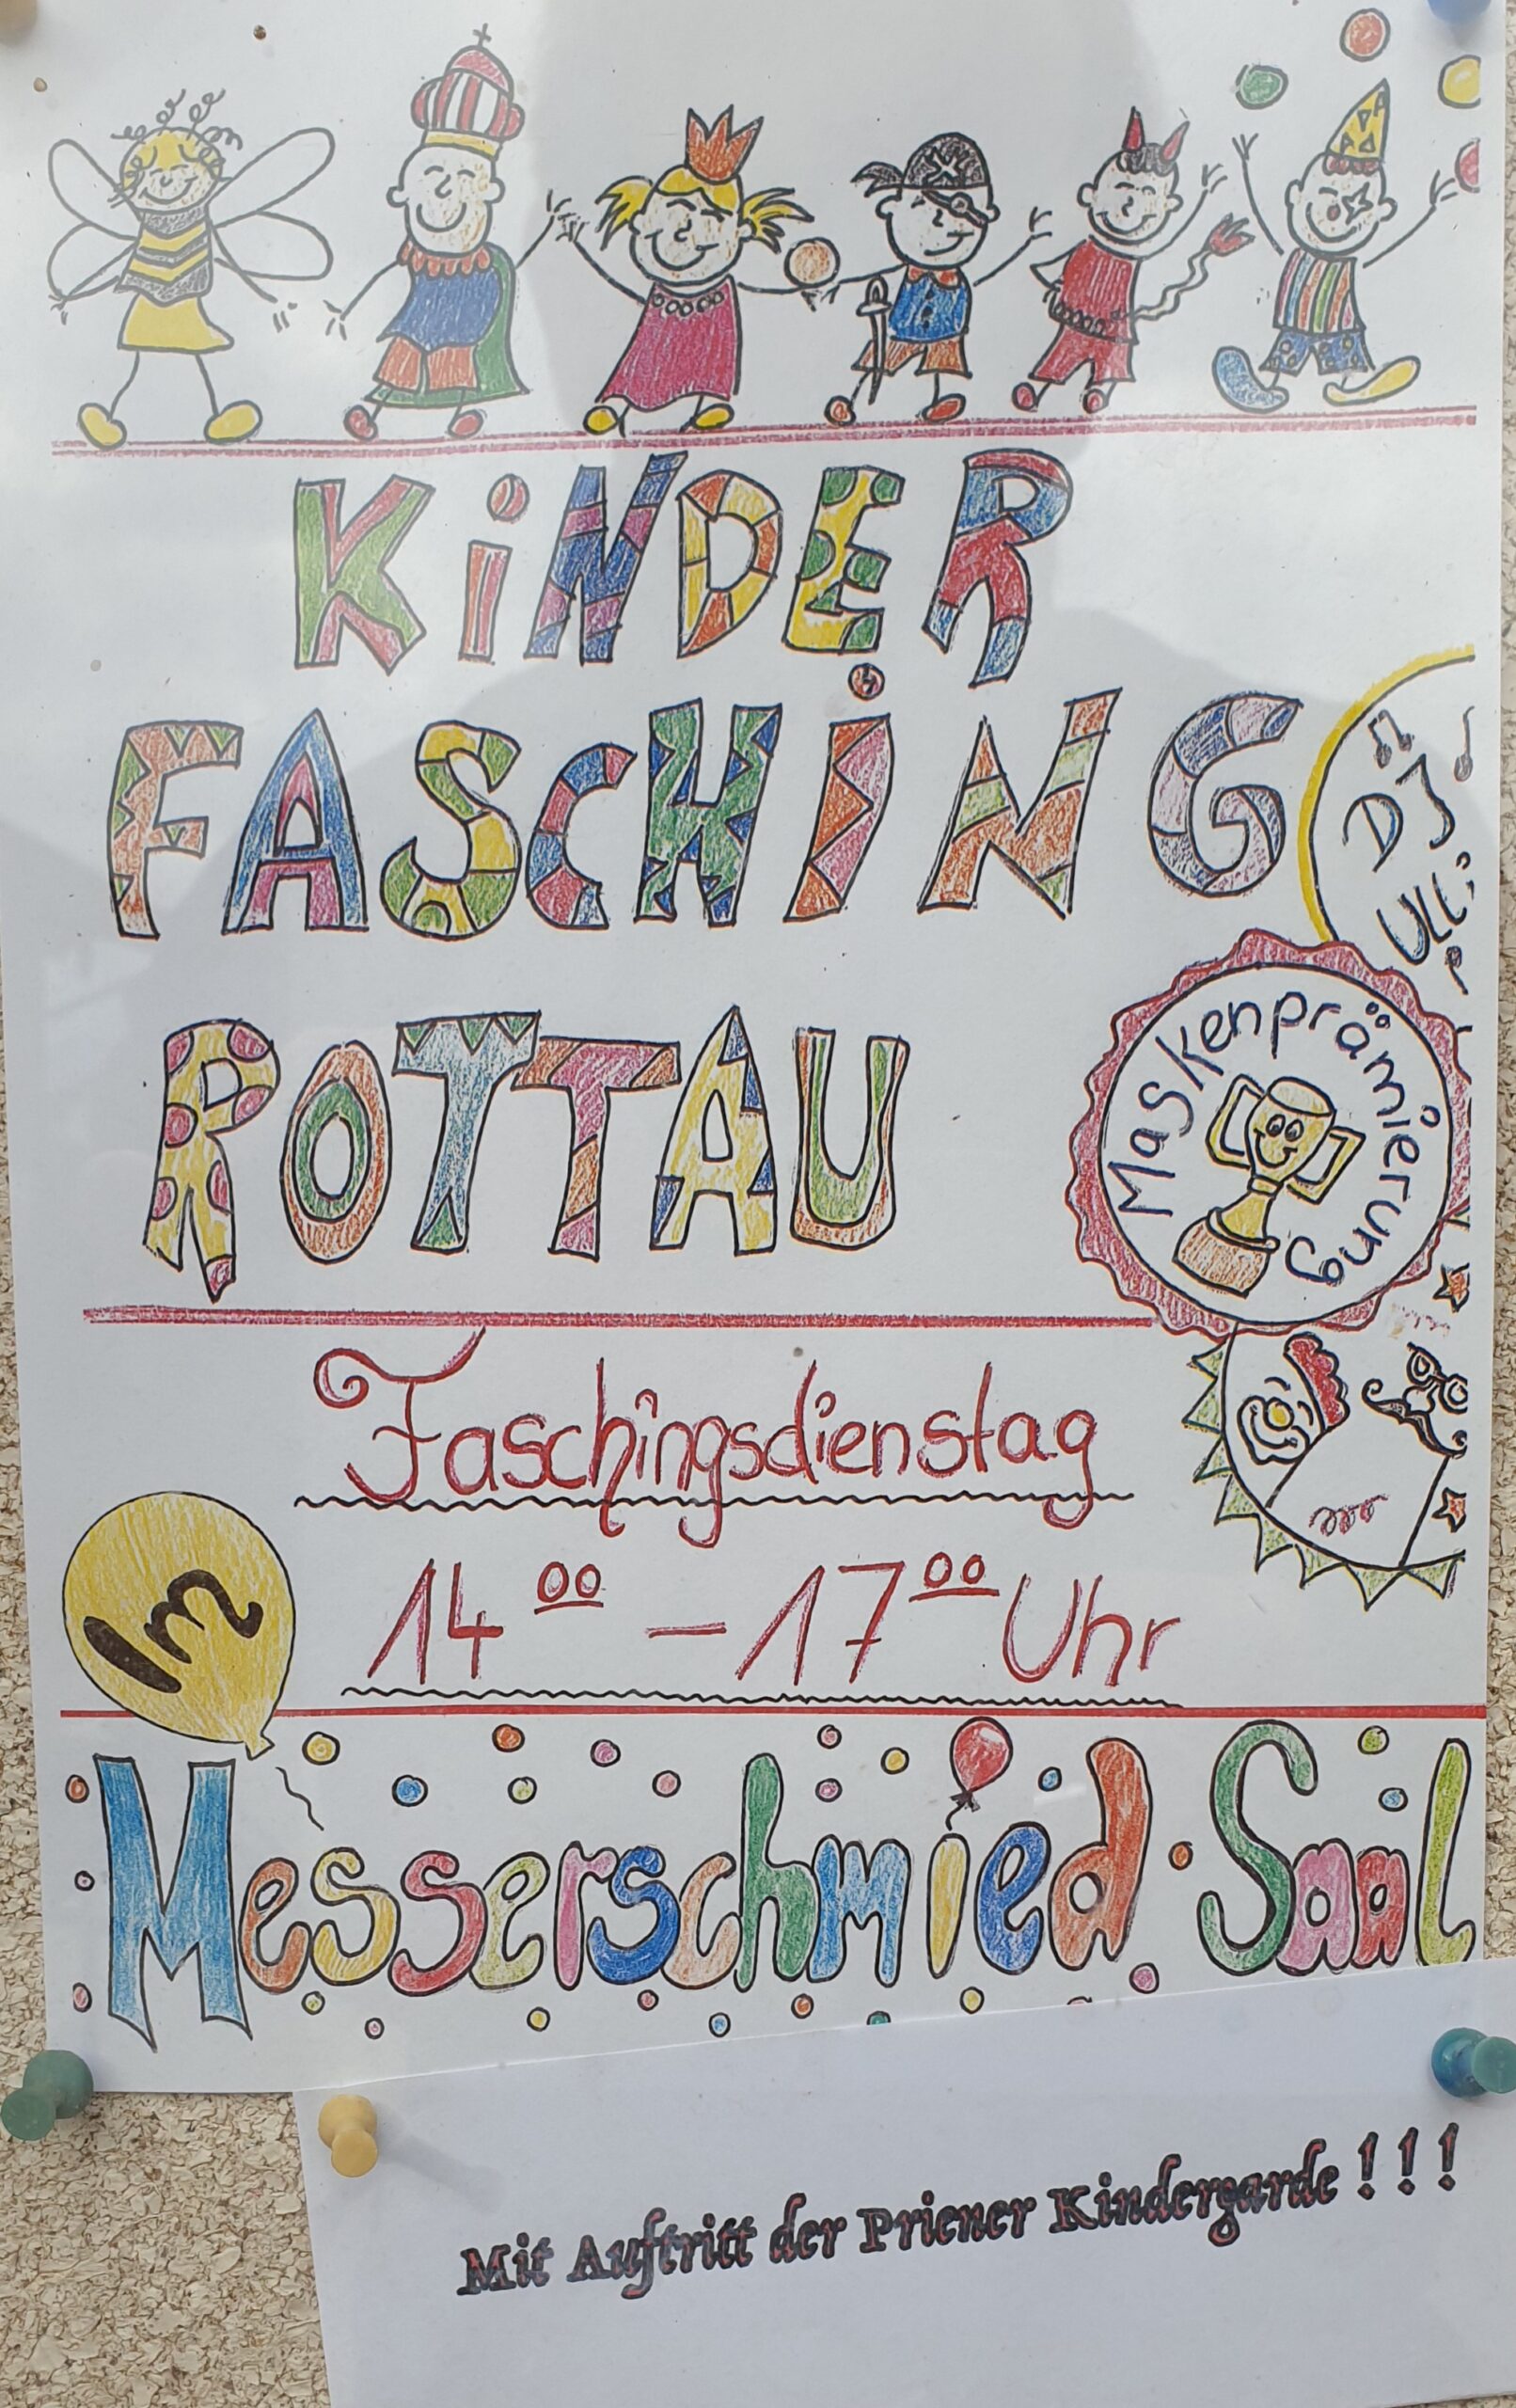 KiNDER
FASCHiNG
DJ
ULLi
ROTTAU
Maskenprämierung
Faschingsdienstag
14⁰⁰ – 17⁰⁰ Uhr
Im
Messerschmied Saal
Mit Auftritt der Priener Kindergarde ! ! !